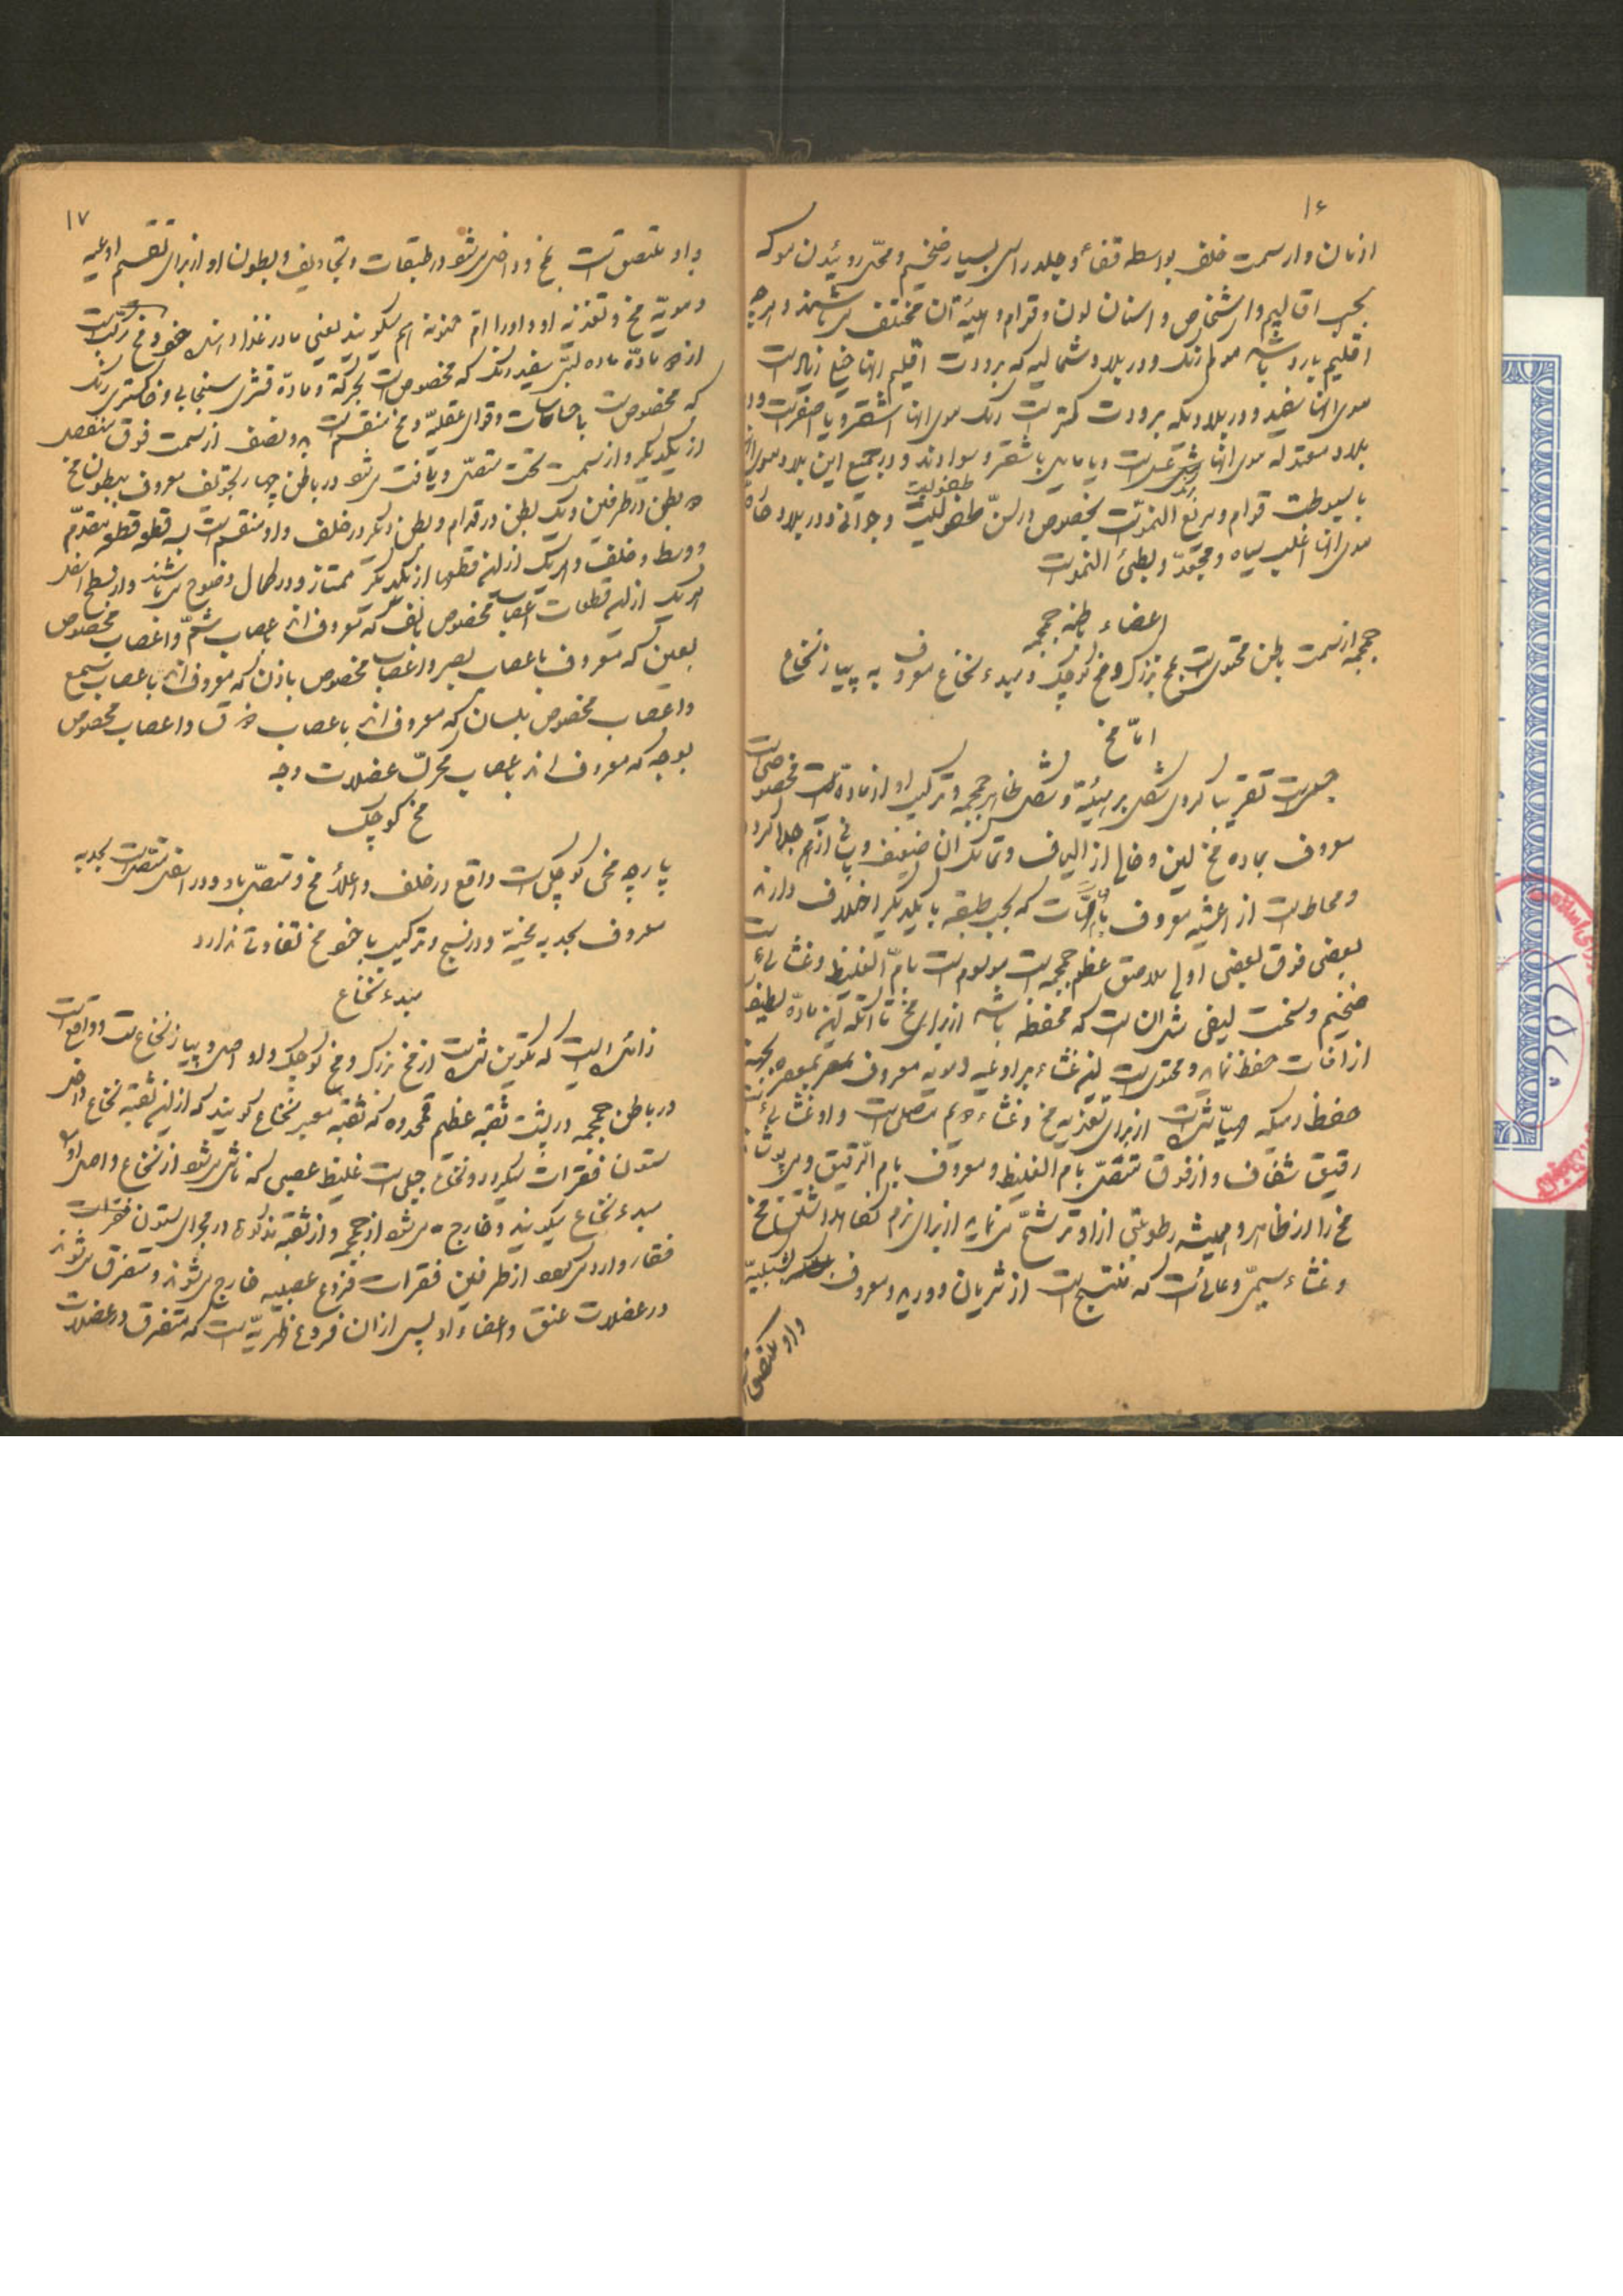 ۱۶
ازنان واز سمت خلف بواسطه قفاء و جلد راس بسیار ضخیم و محل روئیدن موکه
بحسب اقالیم واشخاص و اسنان لون و قوام و هیئة آن مختلف میباشند و هرچه
اقلیم بارد باشد مو کم رنک و در بلاد شمالیه که برودت اقلیم انها خیلی زیاد است
موی انها سفید و در بلادیکه برودت کمتر است رنک موی انها اشقر و یا اصفر است و در
بلاد معتدله موی انها عسلی است و یا مایل باشقر و سوادند و در جمیع این بلاد موی انها
با سبوطت قوام و سریع النمو است بخصوص در سن طفولیت و جوانی و در بلاد حاره
موی انها اغلب سیاه و مجعد و بطئ النمو است
اعضاء باطنه جمجمه
جمجمه از سمت باطن محتوی است بمخ بزرک و مخ کوچک و مبدء نخاع معروف به پیاز نخاع
اما مخ
جسمی است تقریبا کروی شکل بر هیئة و شکل ظاهر جمجمه و ترکیب او از ماده ایست مخصوصی است
معروف بماده مخ لین و خالی از الیاف و تماسک ان ضعیف و
ومحاط است از اغشیه معروف بام که بحسب طبقه با یکدیگر اختلاف دارند
بعضی فوق بعضی اولی ملاصق عظم جمجمه است موسوم است بام الغلیظ و غشائی است
ضخیم و سخت لیفی شکل ان است که محفظه باشد از برای مخ تا انکه این ماده لطیف
از افات حفظ نماید و محتوی است این غشاء بر اوعیه دمویه معروف بمعصره بجهة
حفظ دمیکه مهیا شده است از برای تغذیه مخ و غشاء دویم متصل است و او غشائی است
رقیق شفاف و از فوق متصل بام الغلیظ و معروف بام الرقیق و میپوشاند
مخ را از ظاهر و همیشه رطوبتی از او ترشح مینماید از برای نرم نگاهداشتن مخ
و غشاء سیمی وعائی است که منتسج است از شریان و ورید و معروف شبکیه
واو ملتصق
۱۷
واو ملتصق است بمخ و داخل میشود در طبقات و تجاویف و بطون او از برای تقسیم اوعیه
دمویه مخ و تغذیه او و اورا ام حنونه هم میگویند یعنی مادر غذا دهنده خود و مخ مرکب است
از دو ماده ماده لبی سفید رنک که مخصوص است بحرکة و ماده قشری سنجابی و خاکستری رنک
که مخصوص است باحساسات و قوای عقلیه و مخ منقسم است بدو نصف از سمت فوق منفصل
از یکدیگر و از سمت تحت متصل و یافت میشود در باطن چهار تجویف معروف ببطون مخ
دو بطن در طرفین و یک بطن در قدام و بطن دیگر در خلف واو منقسم است بسه قطعه قطعه مقدم
و وسط و خلف و هر یک از این قطعها از یکدیگر ممتاز و در کمال وضوح میباشند و از سطح اسفل
هر یک از این قطعات اعصاب مخصوص بانف که معروف اند باعصاب شم و اعصاب مخصوص
بعین که معروف باعصاب بصر و اعصاب مخصوص باذن که معروف اند باعصاب سمع
و اعصاب مخصوص بلسان که معروف اند باعصاب ذوق و اعصاب مخصوص
بوجه که معروف اند باعصاب محرک عضلات وجه
مخ کوچک
پارچه مخی کوچکی است واقع در خلف و اعلاء مخ و متصل باو و در اسفل متصل است بحدبه
معروف بحدبه مخیة و در نسج و ترکیب با خود مخ تفاوتی ندارد
مبدء نخاع
زائده ایست که تکوین شده است از مخ بزرک و مخ کوچک و او اصل و پیاز نخاع است و واقع است
در باطن جمجمه در پشت ثقبه عظم قمحدوه که ثقبه معبر نخاع گویند که از این ثقبه نخاع داخل
ستون فقرات میگردد و نخاع جسمی است غلیظ عصبی که ناشی میشود از نخاع و اصل او را
مبدء نخاع میگویند و خارج میشود از جمجمه و از ثقبه مذکوره در مجرای ستون فقرات
فقار وارد میشود از طرفین فقرات فروع عصبیه خارج میشوند و متفرق میشوند
در عضلات عنق و اعضاء او پس از ان فروع ظهریه است که متفرق در عضلات